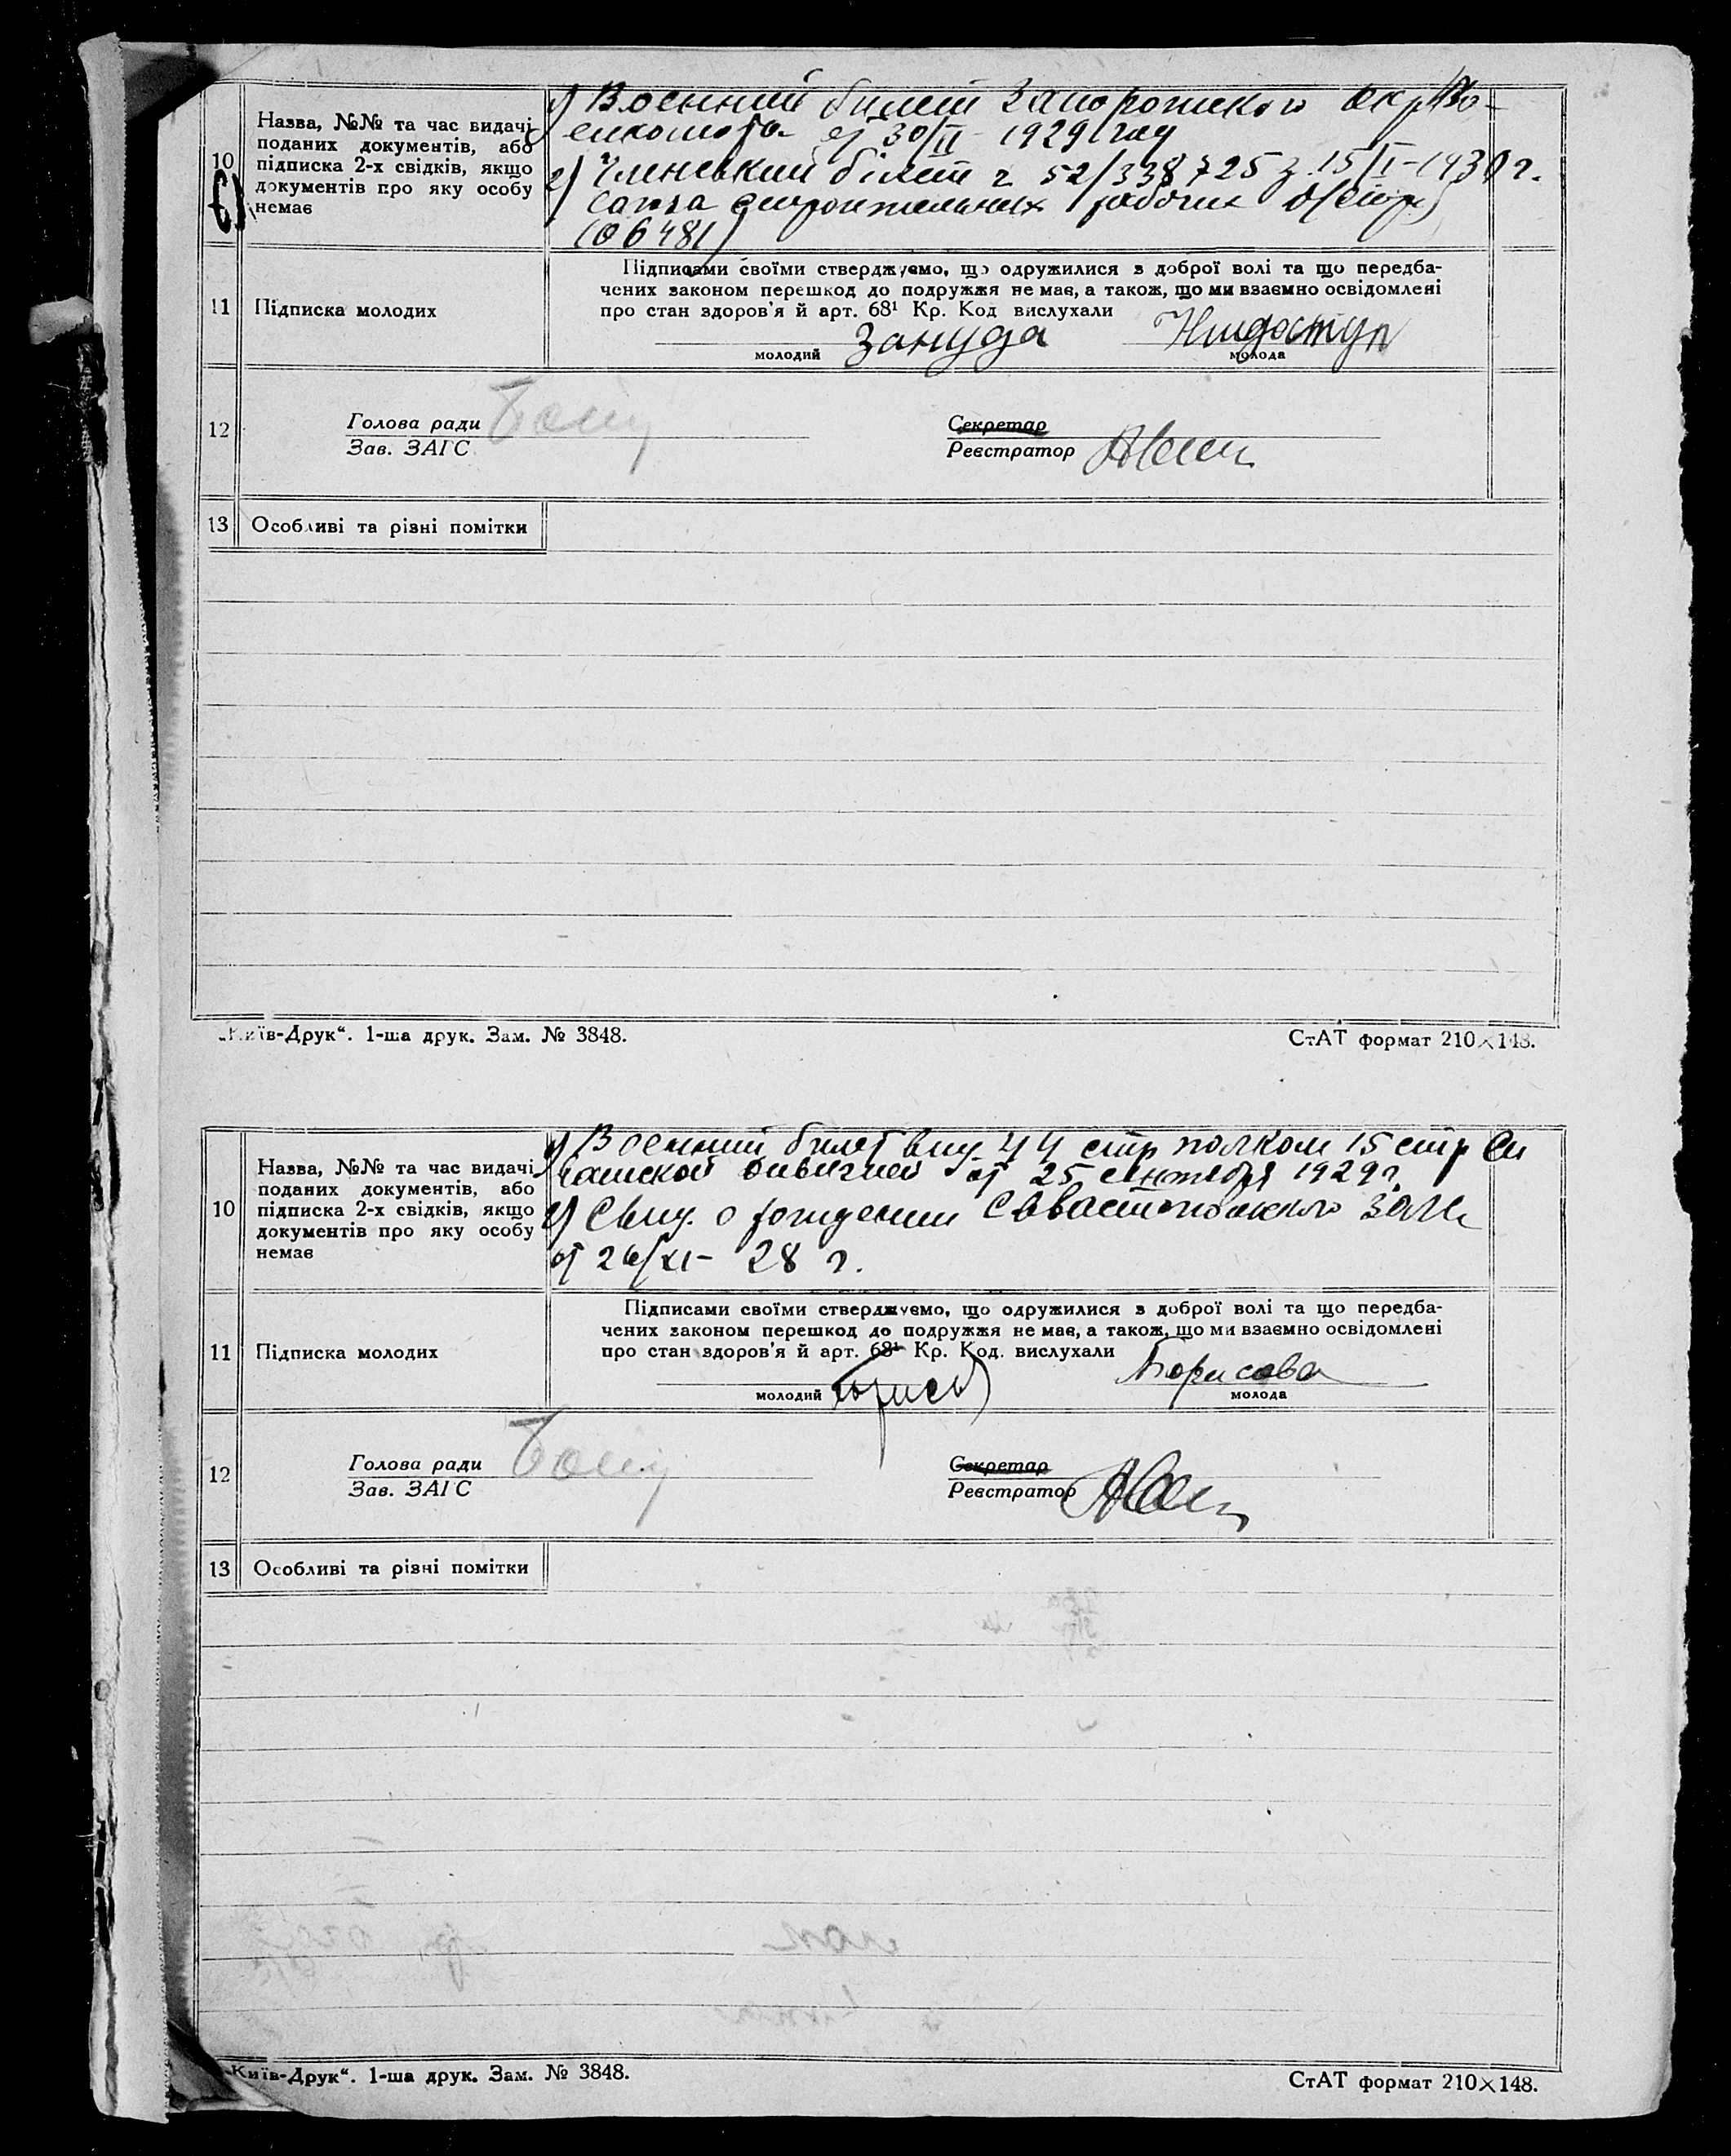 10
Назва, №№ та час видачі
поданих документів, або
підписка 2-х свідків, якщо
документів про яку особу
немає
1) Военний билет Запорожского Окрво-
енкомата от 30/II - 1929 году
2) Членський білет г 52/338725 з 15/I-1930 г.
Союза строительних рабочих
(06481)
11
Підписка молодих
Підписами своїми стверджуємо, що одружилися з доброї волі та що передба-
чених законом перешкод до подружжя не має, а також, що ми взаємно освідомлені
про стан здоров'я й арт. 68¹ Кр. Код вислухали
молодий Зануда
молода
12
Голова ради
Зав. ЗАГС
Секретар
Реєстратор
13 Особливі та різні помітки
„Київ-Друк“. 1-ша друк. Зам. № 3848.
СтАТ формат 210×148.
10
Назва, №№ та час видачі
поданих документів, або
підписка 2-х свідків, якщо
документів про яку особу
немає
1) Военний билет выд. 44 стр полком 15 стр Си
вашской дивизией от 25 сентября 1929 г.
2) Свид. о рождении Севастопольского
от 26/XI - 28 г.
11
Підписка молодих
Підписами своїми стверджуємо, що одружилися з доброї волі та що передба-
чених законом перешкод до подружжя не має, а також, що ми взаємно освідомлені
про стан здоров'я й арт. 68¹ Кр. Код. вислухали
молодий
молода Борисова
12
Голова ради
Зав. ЗАГС
Секретар
Реєстратор
13 Особливі та різні помітки
„Київ-Друк“. 1-ша друк. Зам. № 3848.
СтАТ формат 210×148.